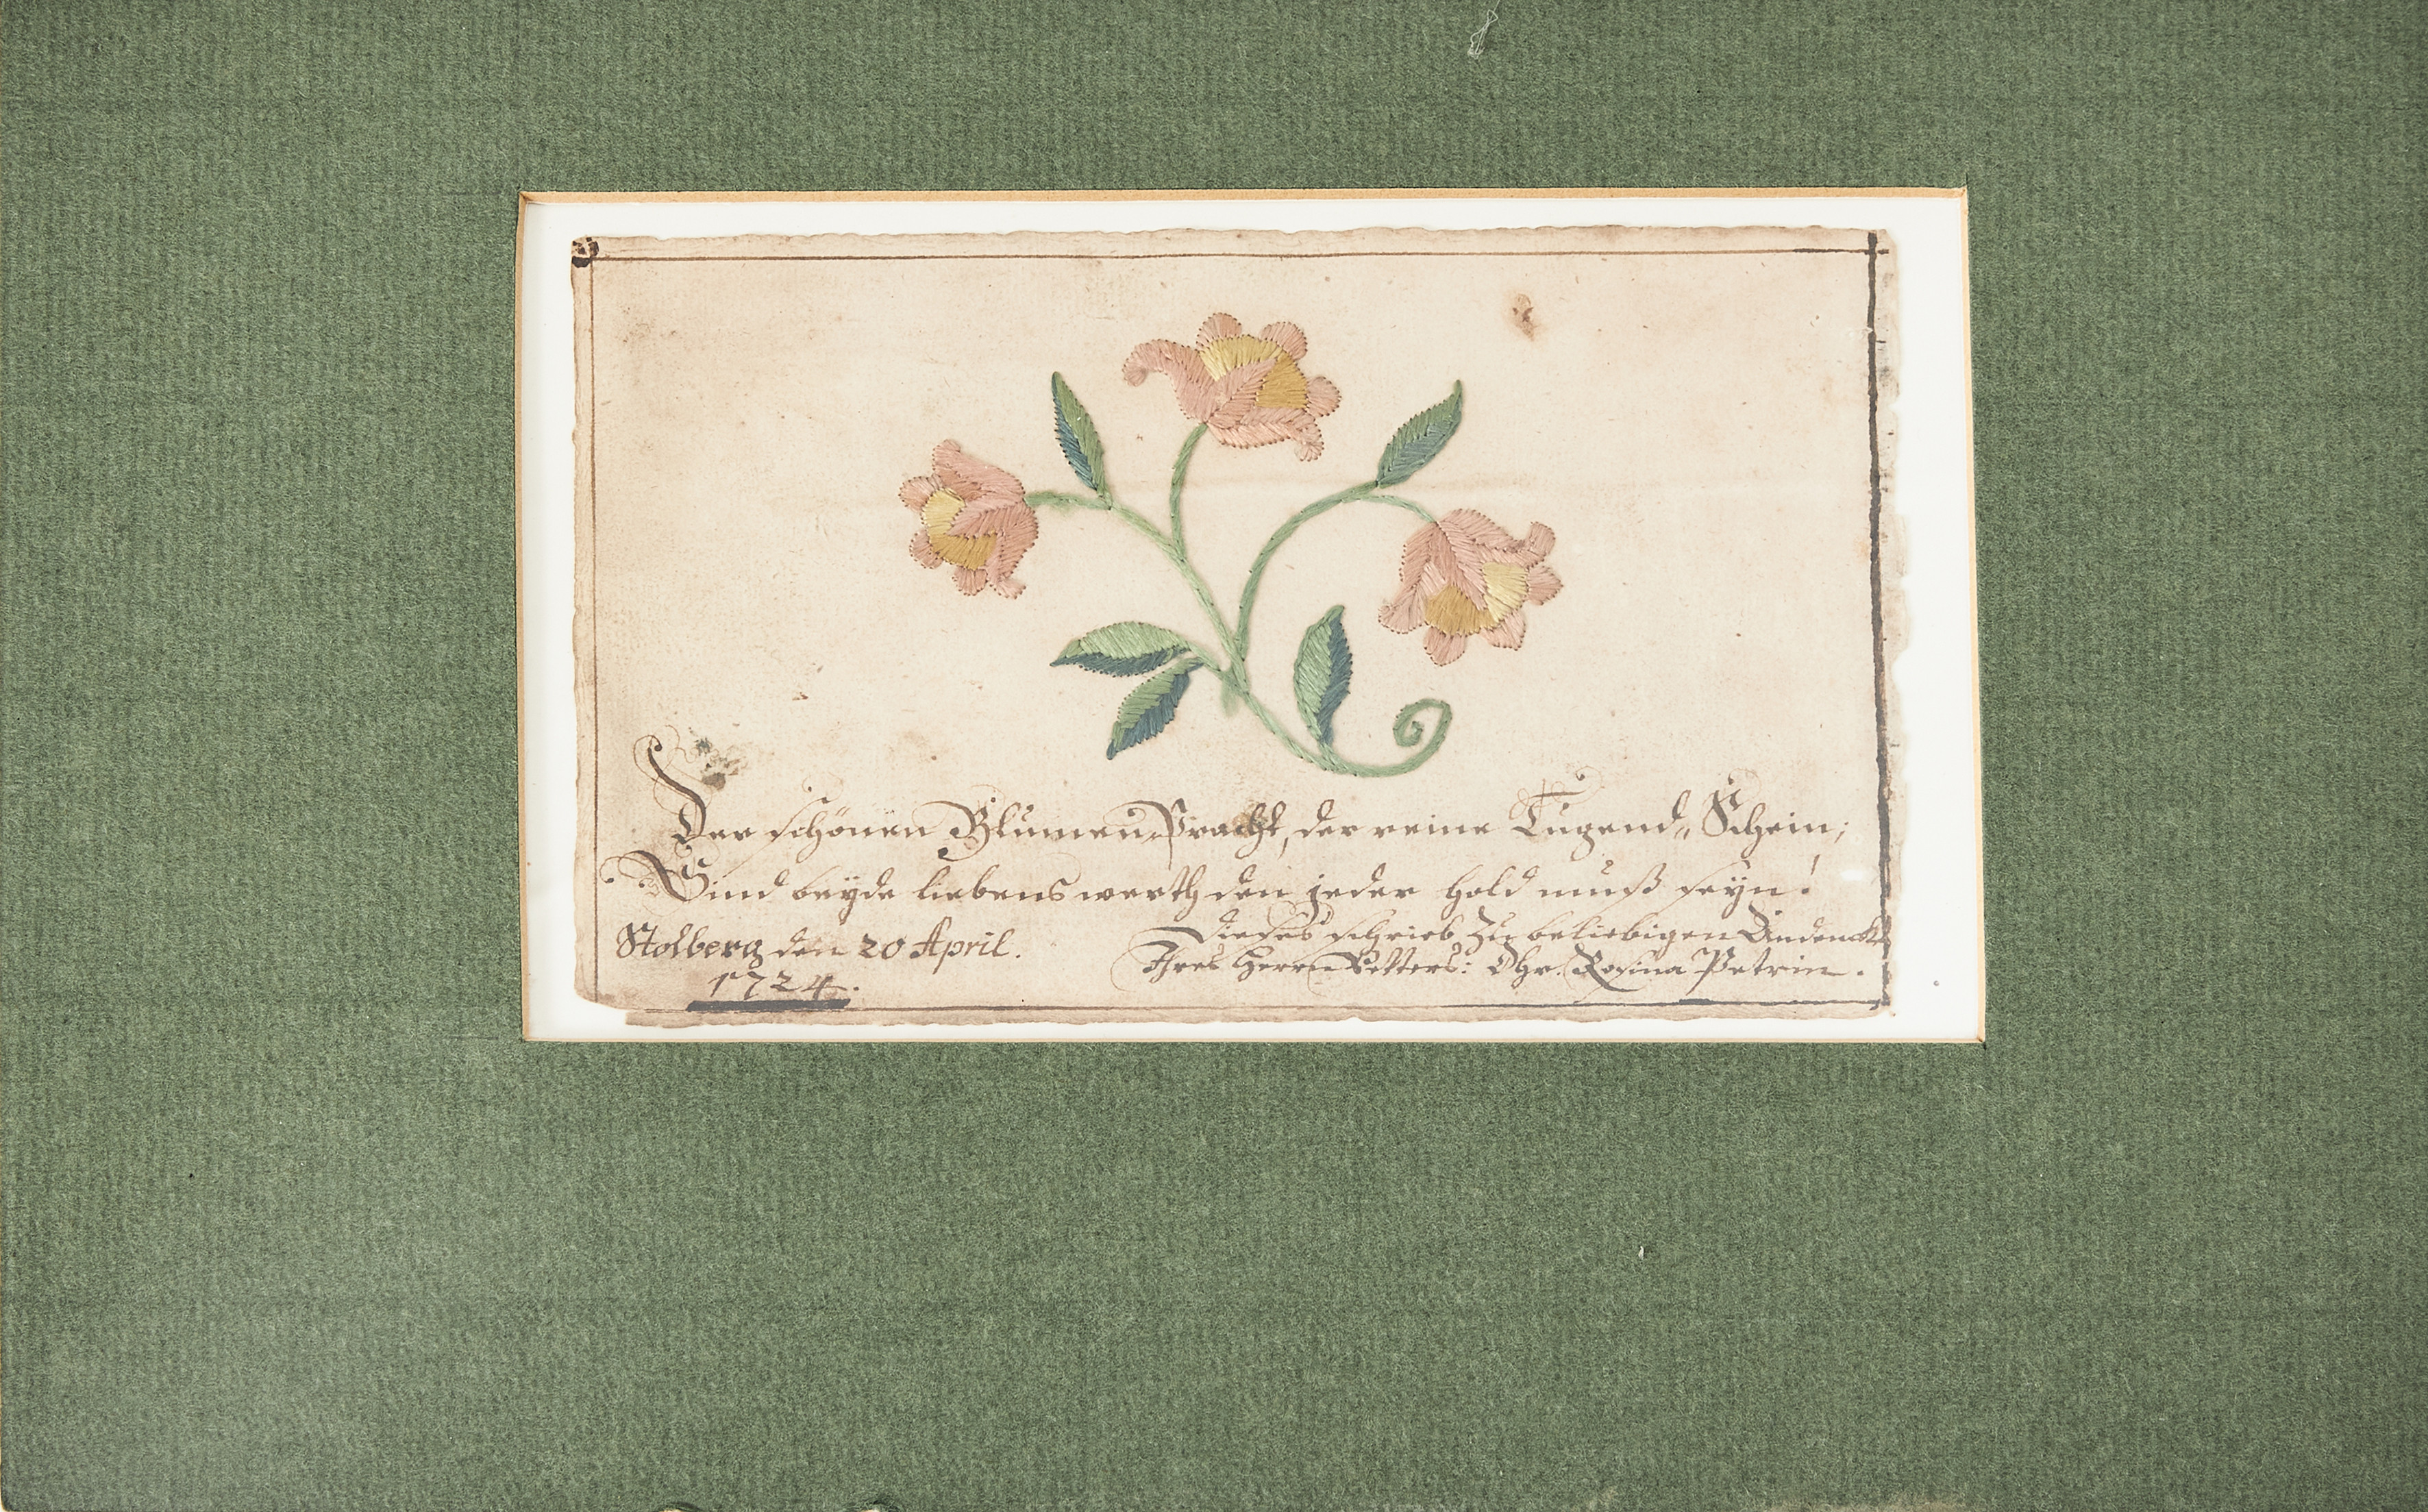 Der schönen Blumen-Pracht, der reine Tugend„ Schein;
Sind beÿde liebens werth den jeder hold muß seÿn!
Stolberg den 20 April.
1724.
Dieses schrieb zu beliebigen Andencken
Ihres Herrn Vetters: Chr. Rosina Petrin.